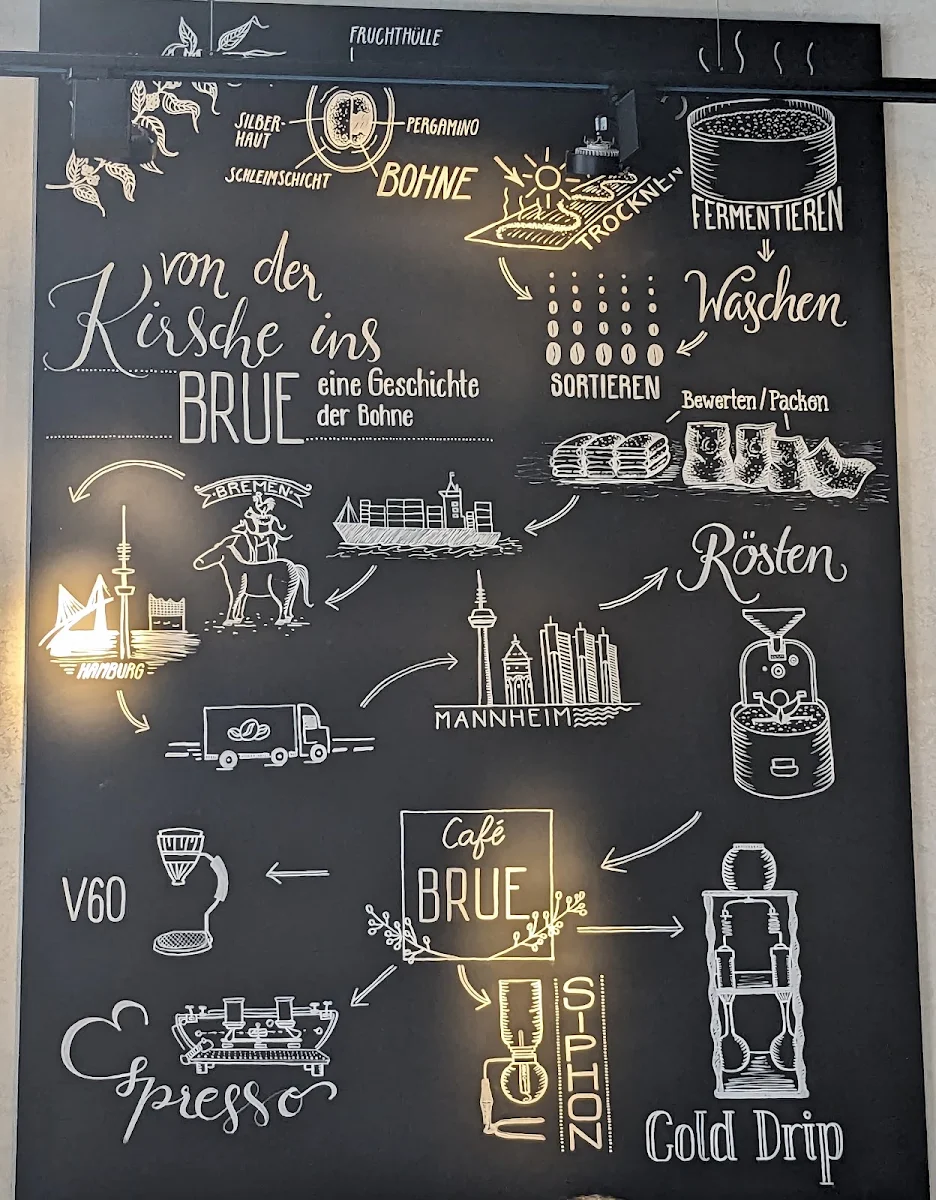 FRUCHTHÜLLE
SILBER-
HAUT
PERGAMINO
SCHLEIMSCHICHT
BOHNE
TROCKNEN
FERMENTIEREN
Waschen
von der
Kirsche ins
BRUE
eine Geschichte
der Bohne
SORTIEREN
Bewerten/Packen
BREMEN
HAMBURG
Rösten
MANNHEIM
Café
BRUE
V60
Espresso
SIPHON
Cold Drip